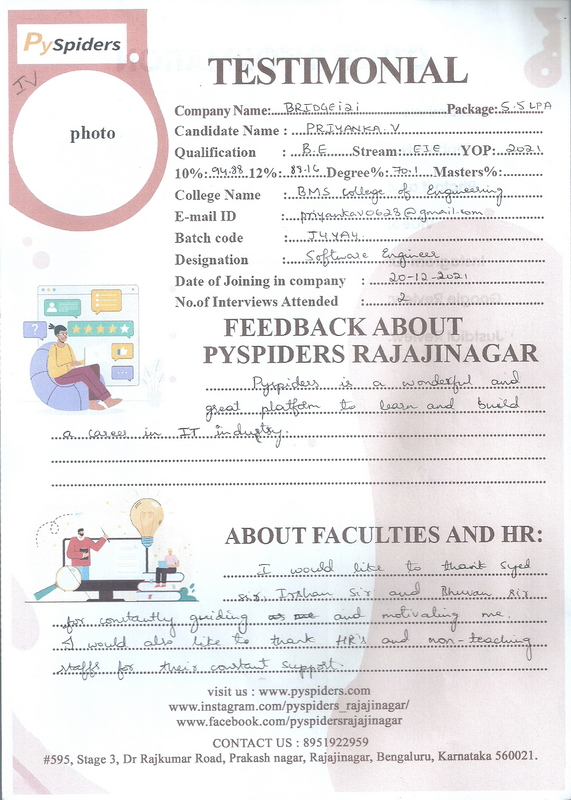 PySpiders
IV
photo
TESTIMONIAL
Company Name: BRIDGEi2i Package: 5.5 LPA
Candidate Name : PRIYANKA.V
Qualification : B.E Stream: EIE YOP: 2021
10%: 94.88 12%: 89.16 Degree%: 70.1 Masters%:
College Name : BMS College of Engineering
E-mail ID : priyankav0628@gmail.com
Batch code : J4YA4
Designation : Software Engineer
Date of Joining in company : 20-12-2021
No.of Interviews Attended : 2
FEEDBACK ABOUT
PYSPIDERS RAJAJINAGAR
Pyspiders is a wonderful and
great platform to learn and build
a career in IT industry.
ABOUT FACULTIES AND HR:
I would like to thank Syed
sir, Irshan Sir and Bhuvan sir
for constantly guiding and motivating me.
I would also like to thank HR's and non-teaching
staffs for their constant support.
visit us : www.pyspiders.com
www.instagram.com/pyspiders_rajajinagar/
www.facebook.com/pyspidersrajajinagar
CONTACT US : 8951922959
#595, Stage 3, Dr Rajkumar Road, Prakash nagar, Rajajinagar, Bengaluru, Karnataka 560021.